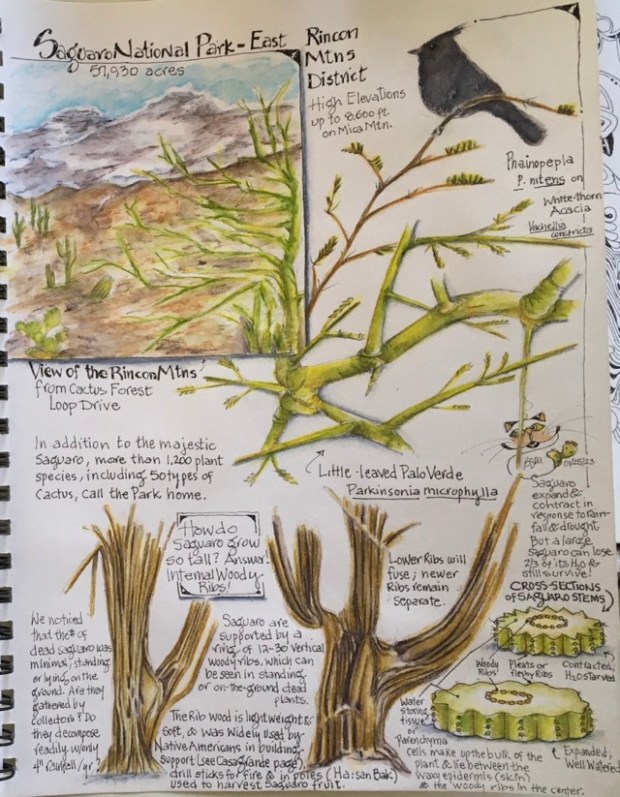 Saguaro National Park - East
57,930 acres
Rincon
Mtns
District
High Elevations
up to 8,600 ft
on Mica Mtn.
Phainopepla
P. nitens on
White-thorn
Acacia
Vachellia
constricta
View of the Rincon Mtns
from Cactus Forest
Loop Drive
In addition to the majestic
Saguaro, more than 1,200 plant
species, including 50 types of
Cactus, call the Park home.
Little-leaved Palo Verde
Parkinsonia microphylla
01/25/23
Saguaro
expand &
contract in
response to Rain-
fall & drought
But a large
Saguaro can lose
2/3 of its H2O &
still survive!
How do
Saguaro grow
so tall? Answer:
Internal Woody
Ribs!
Lower Ribs will
fuse; newer
Ribs remain
separate.
CROSS-SECTIONS
OF SAGUARO STEMS
Woody
Ribs
Pleats or
fleshy Ribs
Contracted;
H2O starved
We noticed
that the # of
dead Saguaro was
minimal, standing
or lying on the
ground. Are they
gathered by
collectors? Do
they decompose
readily w/only
4" rainfall/yr?
Saguaro are
supported by a
ring of 12-30 vertical
woody ribs, which can
be seen in standing
or on-the-ground dead
plants.
The Rib Wood is lightweight &
soft, & was widely used by
Native Americans in building
support (see Casa Grande page),
drill sticks for fire & in poles (Ha:san Bak)
used to harvest Saguaro fruit.
Water
storing
tissue
or
Parenchyma
cells make up the bulk of the
plant & lie between the
waxy epidermis (skin)
& the woody ribs in the center.
Expanded;
Well Watered